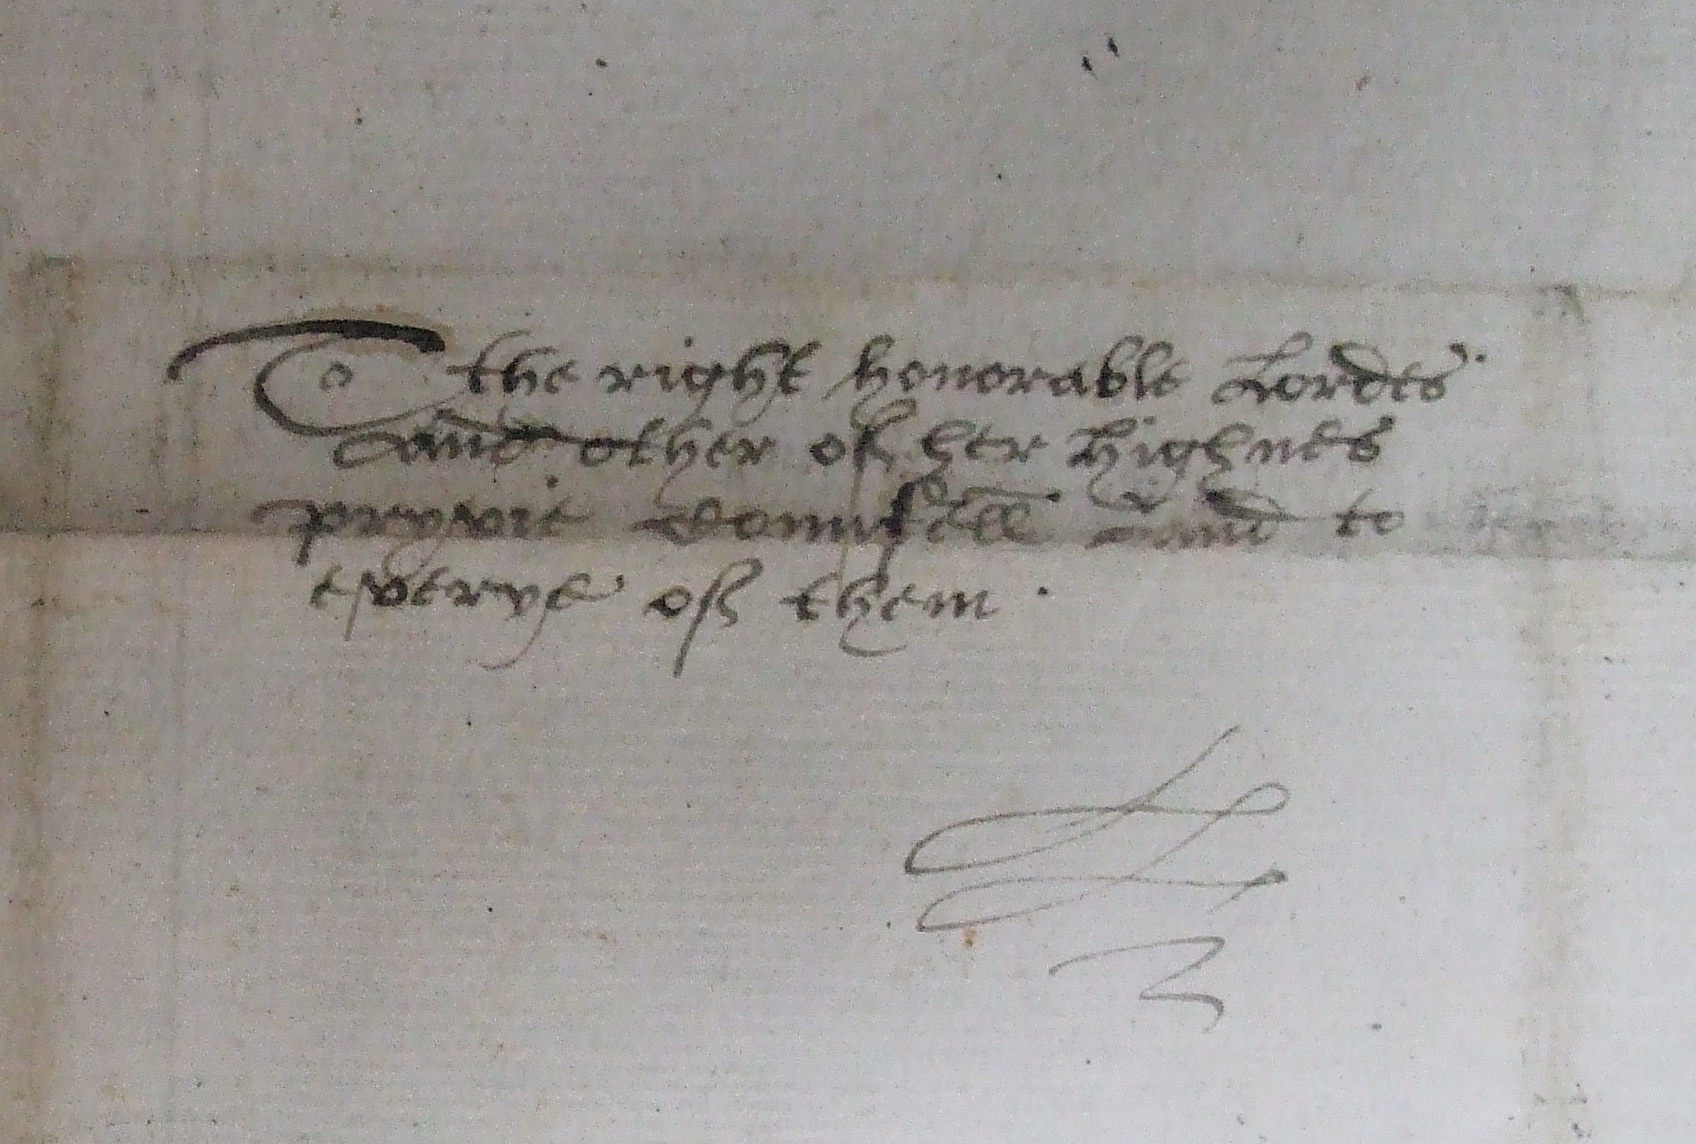 To the right honorable Lordes
and other of her highnes
pryvie Counsell and to
everye of them.